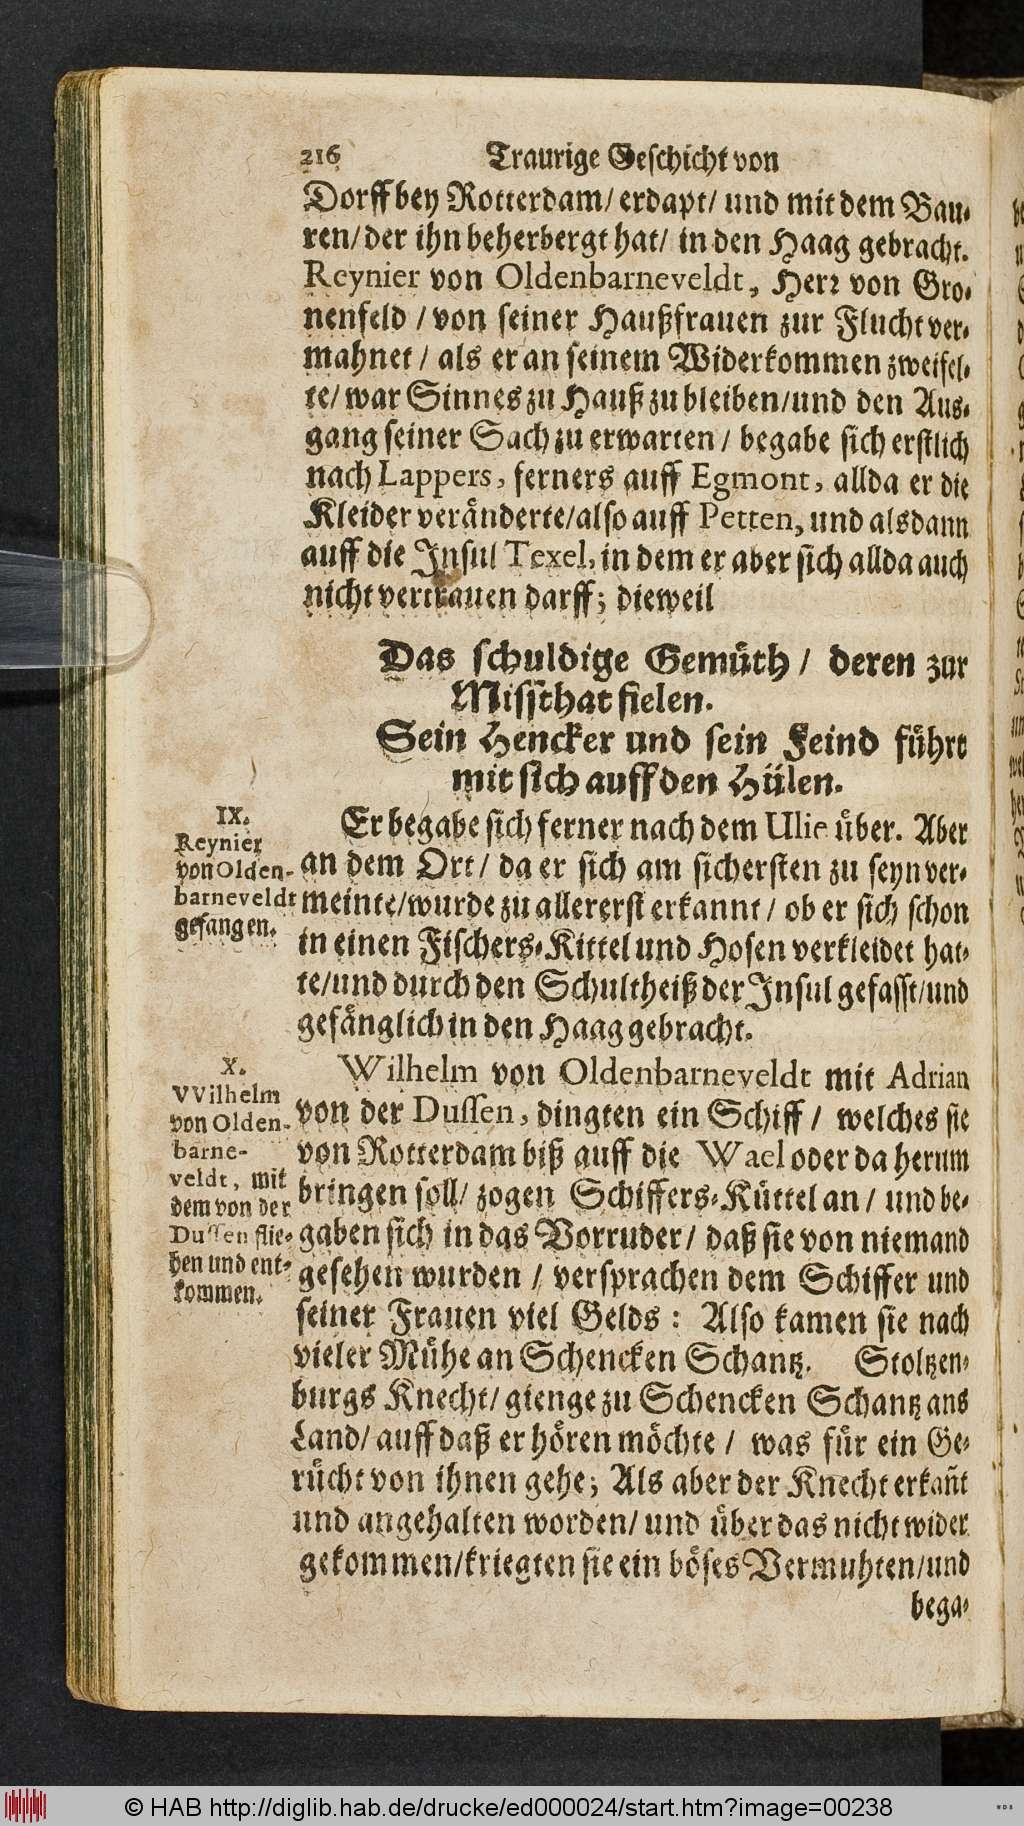 216 Traurige Geschicht von
Dorff bey Rotterdam/ erdapt/ und mit dem Bau-
ren/ der ihn beherbergt hat/ in den Haag gebracht.
Reynier von Oldenbarneveldt, Herr von Gro-
nenfeld / von seiner Haußfrauen zur Flucht ver-
mahnet / als er an seinem Widerkommen zweifel-
te/ war Sinnes zu Hauß zu bleiben/ und den Aus-
gang seiner Sach zu erwarten / begabe sich erstlich
nach Lappers, ferners auff Egmont, allda er die
Kleider veränderte/ also auff Petten, und alsdann
auff die Insul Texel, in dem er aber sich allda auch
nicht vertrauen darff; dieweil
Das schuldige Gemüth / deren zur
Missethat fielen.
Sein Hencker und sein Feind führt
mit sich auff den Hülen.
IX.
Reynier
von Olden-
barneveldt
gefangen.
Er begabe sich ferner nach dem Ulie über. Aber
an dem Ort/ da er sich am sichersten zu seyn ver-
meinte/ wurde zu allererst erkannt / ob er sich schon
in einen Fischers-Kittel und Hosen verkleidet hat-
te/ und durch den Schultheiß der Insul gefasst/ und
gefänglich in den Haag gebracht.
X.
VVilhelm
von Olden-
barne-
veldt, mit
dem von der
Dussen flie-
hen und ent-
kommen.
Wilhelm von Oldenbarneveldt mit Adrian
von der Dussen, dingten ein Schiff / welches sie
von Rotterdam biß auff die Wael oder da herum
bringen soll/ zogen Schiffers-Küttel an / und be-
gaben sich in das Vorruder/ daß sie von niemand
gesehen wurden / versprachen dem Schiffer und
seiner Frauen viel Gelds: Also kamen sie nach
vieler Mühe an Schencken Schantz. Stoltzen-
burgs Knecht/ gienge zu Schencken Schantz ans
Land/ auff daß er hören möchte / was für ein Ge-
rücht von ihnen gehe; Als aber der Knecht erkañt
und angehalten worden/ und über das nicht wider
gekommen/ kriegten sie ein böses Vermuhten/ und
bega-
© HAB http://diglib.hab.de/drucke/ed000024/start.htm?image=00238